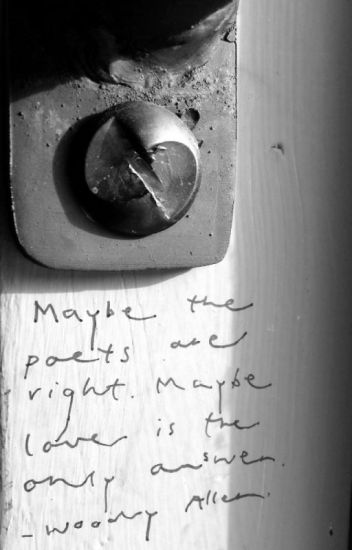 Maybe the
poets are
right. Maybe
love is the
only answer.
- Woody Allen.